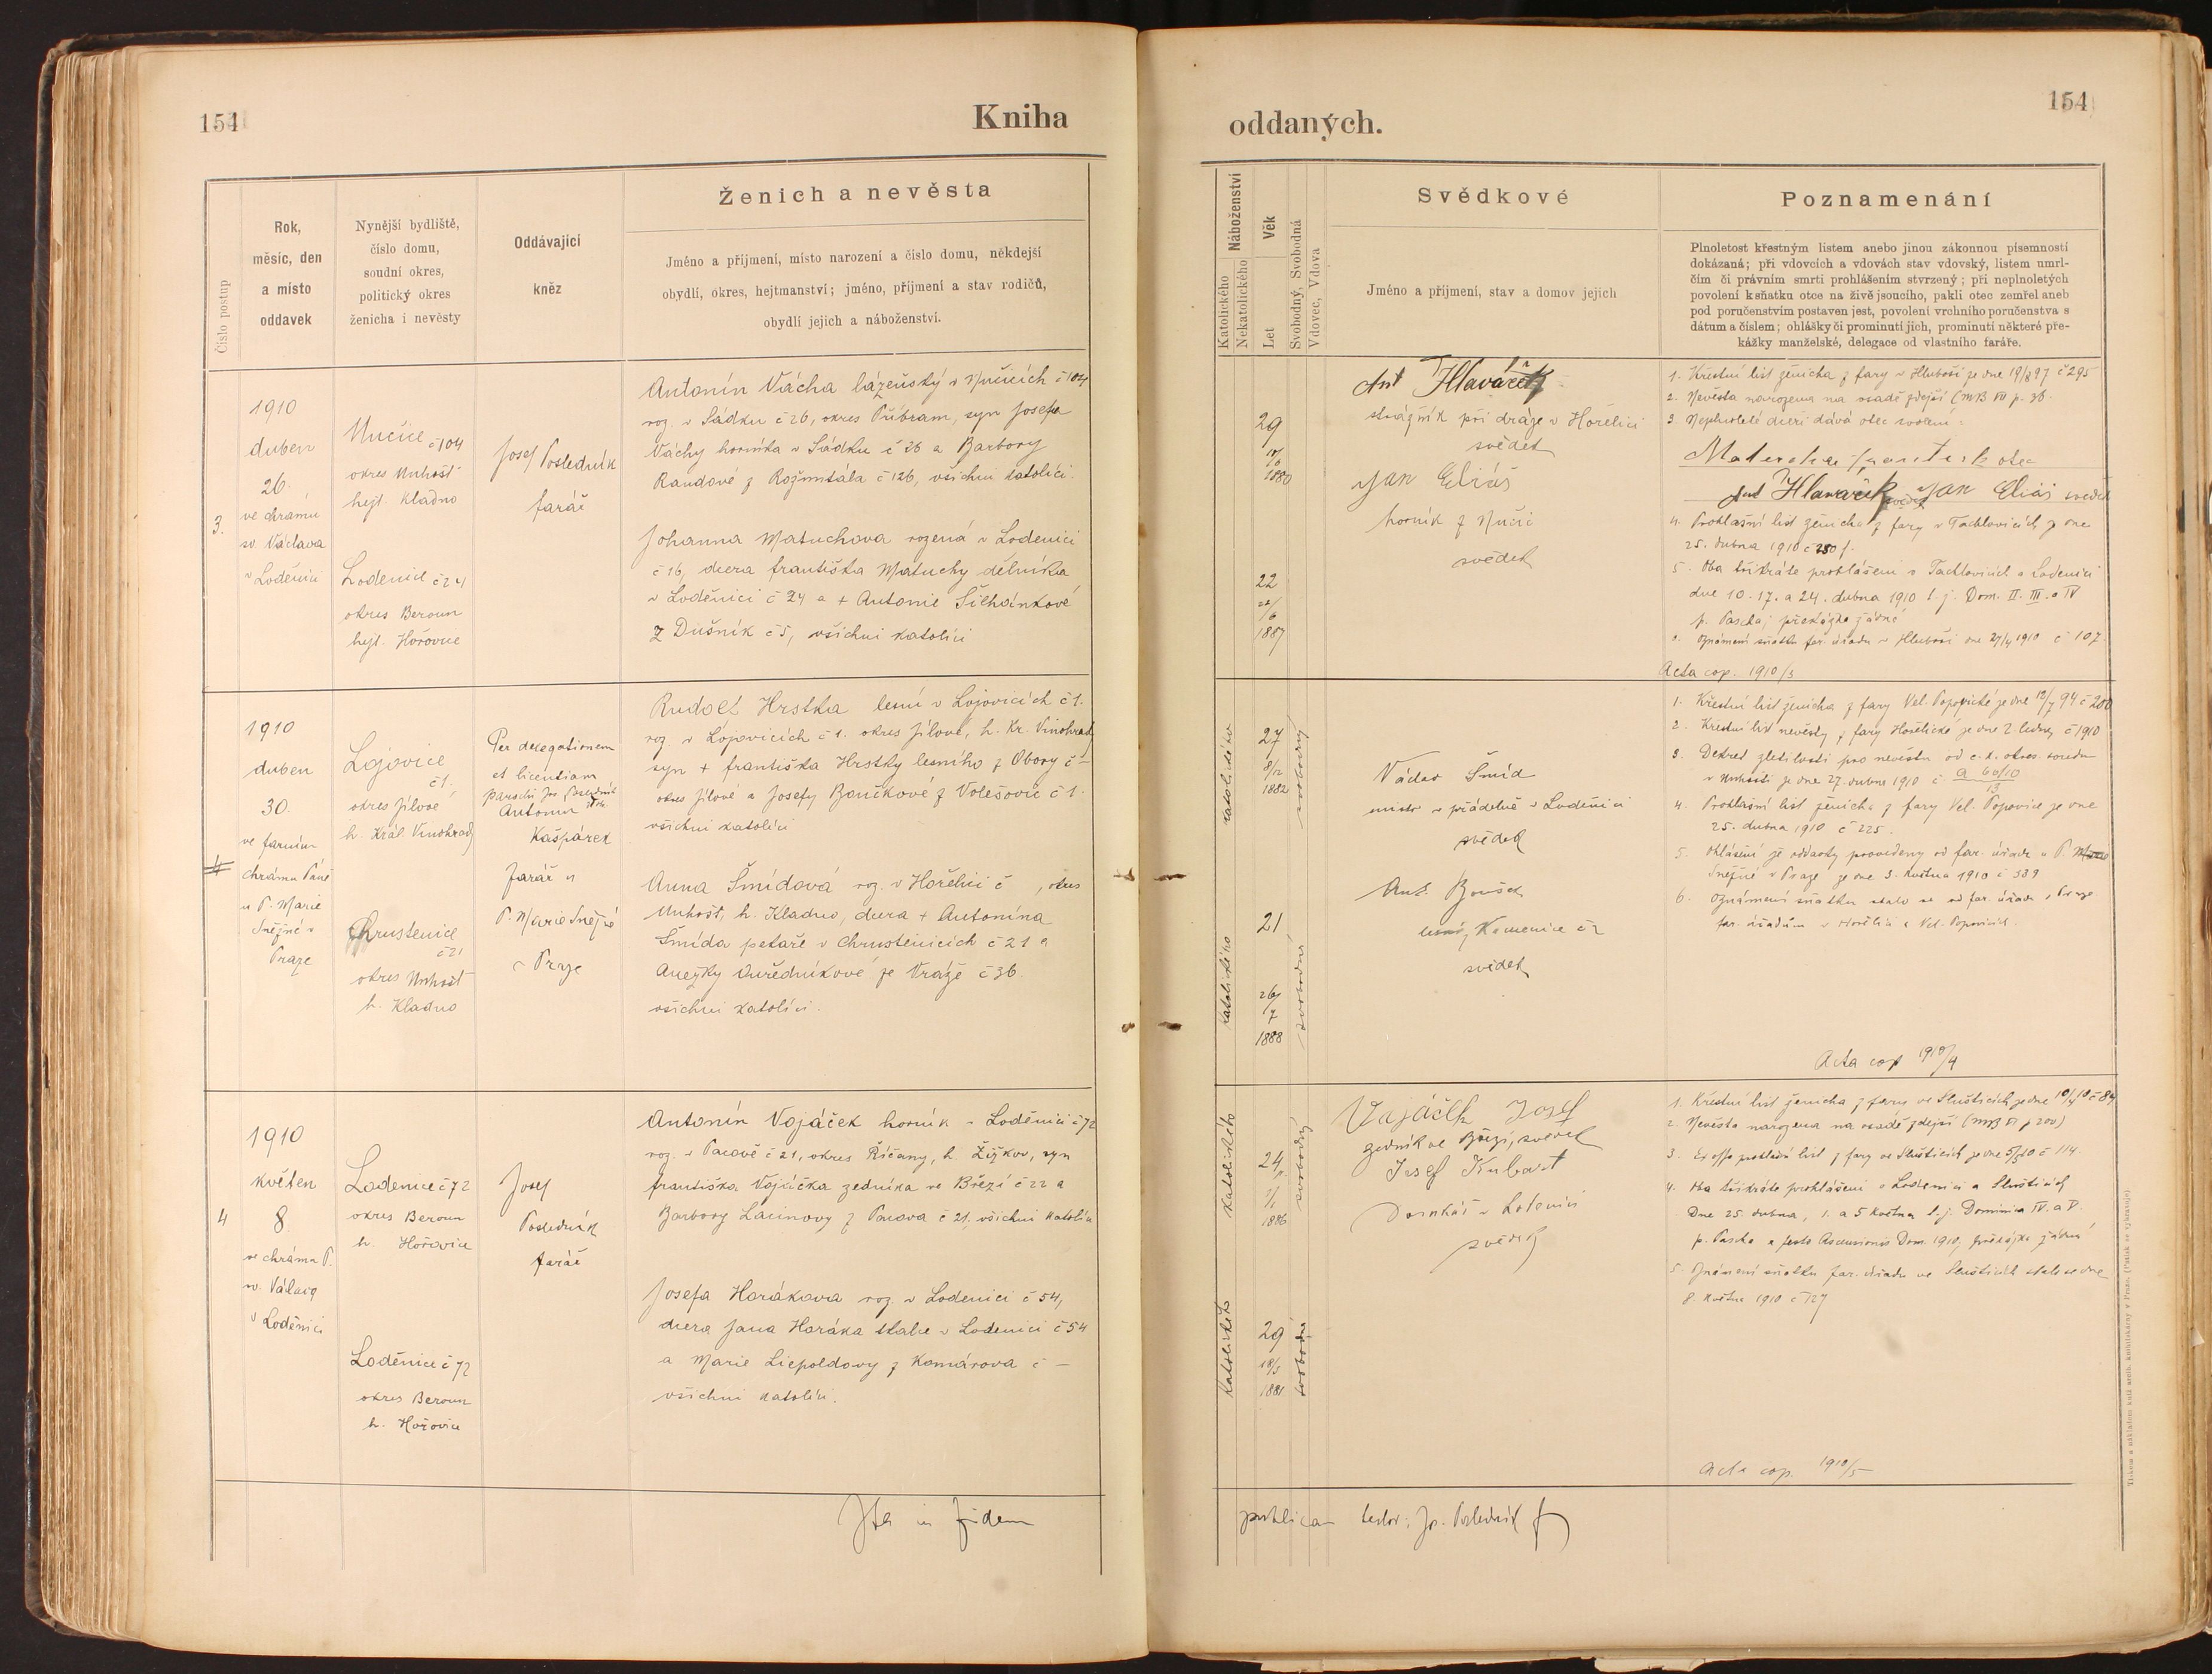 154
Kniha
oddaných.
154
Číslo postup
Rok,
měsíc, den
a místo
oddavek
Nynější bydliště,
číslo domu,
soudní okres,
politický okres
ženicha i nevěsty
Oddávající
kněz
Ženich a nevěsta
Jméno a příjmení, místo narození a číslo domu, někdejší
obydlí, okres, hejtmanství; jméno, příjmení a stav rodičů,
obydlí jejich a náboženství.
Náboženství
Katolického
Nekatolického
Věk
Let
Svobodný, Svobodná
Vdovec, Vdova
Svědkové
Jméno a příjmení, stav a domov jejich
Poznamenání
Plnoletost křestným listem anebo jinou zákonnou písemností
dokázaná; při vdovcích a vdovách stav vdovský, listem umrl-
čím či právním smrti prohlášením stvrzený; při neplnoletých
povolení k sňatku otce na živě jsoucího, pakli otec zemřel aneb
pod poručenstvím postaven jest, povolení vrchního poručenstva s
dátum a číslem; ohlášky či prominutí jich, prominutí některé pře-
kážky manželské, delegace od vlastního faráře.
3.
1910
duben
26.
ve chrámu
sv. Václava
v Loděnici
Nučice č 104
okres Unhošť
hejt. Kladno
Lodenice č 24
okres Beroun
hejt. Hořovice
Josef Posledník
farář
Antonín Vácha lázeňský v Nučicích č 104
roz. v Sádku č 26, okres Příbram, syn Josefa
Váchy horníka v Sádku č 26 a Barbory
Randové z Rožmitála č 126, všichni katolíci.
Johanna Matuchova rozená v Lodenici
č 16, dcera františka Matuchy dělníka
v Loděnici č 24 a + Antonie Šichánkové
z Dušník č 5, všichni katolíci
29
1880
22
22/6
1887
Ant Hlaváček
strážník při dráze v Hořelici
svědek
Jan Eliáš
horník z Nučic
svědek
1. Křestní list ženicha z fary v Hluboši ze dne 19/8 97 č 295
2. Nevěsta narozena na osadě zdejší (MB VII p. 36.
3. Neplnoleté dceři dává otec svolení:
otec
Ant Hlaváček Jan Eliáš svědek
4. Prohlašní list ženicha z fary v Tachlovicích ze dne
25. dubna 1910 č 250 f.
5. Oba třikráte prohlášeni v Tachlovicích a Lodenici
dne 10. 17. a 24. dubna 1910 t. j. Dom. II. III. a IV
p. Pascha; překážka žádné
6. Oznámení sňatku far. úřadu v Hluboši dne 27/4 1910 č 107.
Acta cop. 1910/3
4
1910
duben
30.
ve farním
chrámu Páně
u P. Marie
Sněžné v
Praze
Lojovice
č 1.
okres Jílové
h. Král. Vinohrady
Chrustenice
č 21
okres Unhošť
h. Kladno
Per delegationem
et licentiam
parochi Jos. Posledník
Antonín
Kašpárek
farář u
P. Marie Sněžné
v Praze
Rudolf Hrstka lesní v Lojovicích č 1.
roz. v Lojovicích č 1. okres Jílové, h. Kr. Vinohrady
syn + františka Hrstky lesního z Obory č –
okres Jílové a Josefy Boučkové z Volešovic č 1.
všichni katolíci
Anna Šmídová roz. v Hořelici č , okres
Unhošť, h. Kladno, dcera + Antonína
Šmída pekaře v Chrustenicích č 21 a
Anežky Ouředníkové ze Vráže č 36.
všichni katolíci.
katolického
27
8/12
1882
svobodný
katolického
21
26/
7
1888
svobodná
Václav Šmíd
mistr v přádelně v Loděnici
svědek
Ant. Boušek
lesní, Kamenice č 2
svědek
1. Křestní list ženicha z fary Vel. Popovické ze dne 12/7 94 č 200
2. Křestní list nevěsty z fary Hořelické ze dne 2. ledna č 1910
3. Dekret zletilosti pro nevěstu od c. k. okres. soudu
v Unhošti ze dne 27. dubna 1910 č a 60/10
13
4. Prohlašní list ženicha z fary Vel. Popovice ze dne
25. dubna 1910 č 225.
5. Ohlášení že oddavky provedeny od far. úřadu u P. Marie
Sněžné v Praze ze dne 3. května 1910 č 389
6. Oznámení sňatku stalo se od far. úřadu v Praze
far. úřadům v Hořelici a Vel. Popovicích.
Acta cop 1910/4
4
1910
květen
8.
ve chrámu P.
sv. Václava
v Loděnici
Lodenice č 72
okres Beroun
h. Hořovice
Loděnice č 72
okres Beroun
h. Hořovice
Josef
Posledník
farář
Antonín Vojáček horník v Loděnici č 72
roz. v Pacově č 21, okres Říčany, h. Žižkov, syn
františka Vojáčka zedníka ve Březí č 22 a
Barbory Lacinovy z Pacova č 21, všichni katolíci
Josefa Horákova roz. v Lodenici č 54,
dcera Jana Horáka tkalce v Lodenici č 54
a Marie Liepoldovy z Komárova č –
všichni katolíci.
katolického
24
1886
svobodný
katolického
29
18/3
1881
svobodná
Vojáček Josef
zedník ve Březí, svědek
Josef Kubart
Domkář v Lodenici
svědek
1. Křestní list ženicha z fary ve Slušticích ze dne 10/4 10 č 84
2. Nevěsta narozena na osadě zdejší (MB VI p 200)
3. Ex offo prohlašní list z fary ve Slušticích ze dne 5/5 10 č 114.
4. Oba třikráte prohlášeni v Lodenici a Slušticích
Dne 25. dubna, 1. a 5. května t. j. Dominica IV. a V.
p. Pascha a festo Ascensionis Dom. 1910, překážka žádná
5. Oznámení sňatku far. úřadu ve Slušticích stalo se dne
8. května 1910 č 127
Acta cop. 1910/5
Ita in fidem
publicam testor: Jos. Posledník